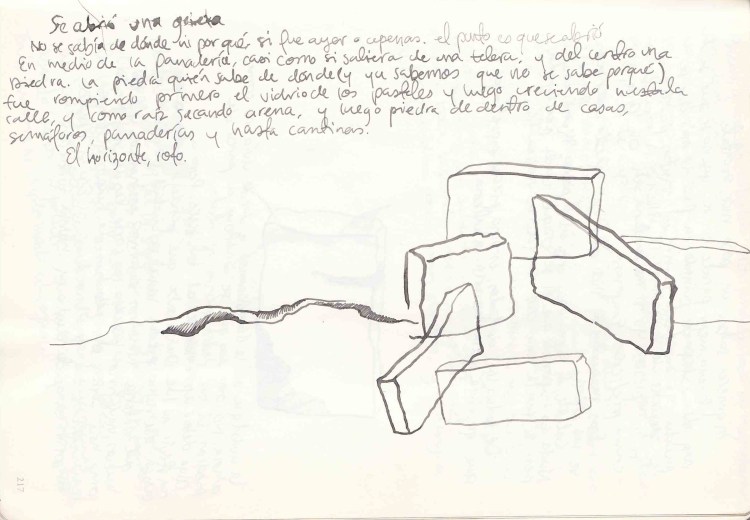 Se abrió una grieta
No se sabía de dónde ni por qué, si fue ayer o apenas. el punto es que se abrió
En medio de la panadería, casi como si saliera de una telera, y del centro una
piedra. La piedra quién sabe de dónde (y ya sabemos que no se sabe porqué)
fue rompiendo primero el vidrio de los pasteles y luego creciendo hasta la
calle, y como raíz sacando arena, y luego piedra de dentro de casas,
semáforos, panaderías y hasta cantinas.
El horizonte, roto.
217